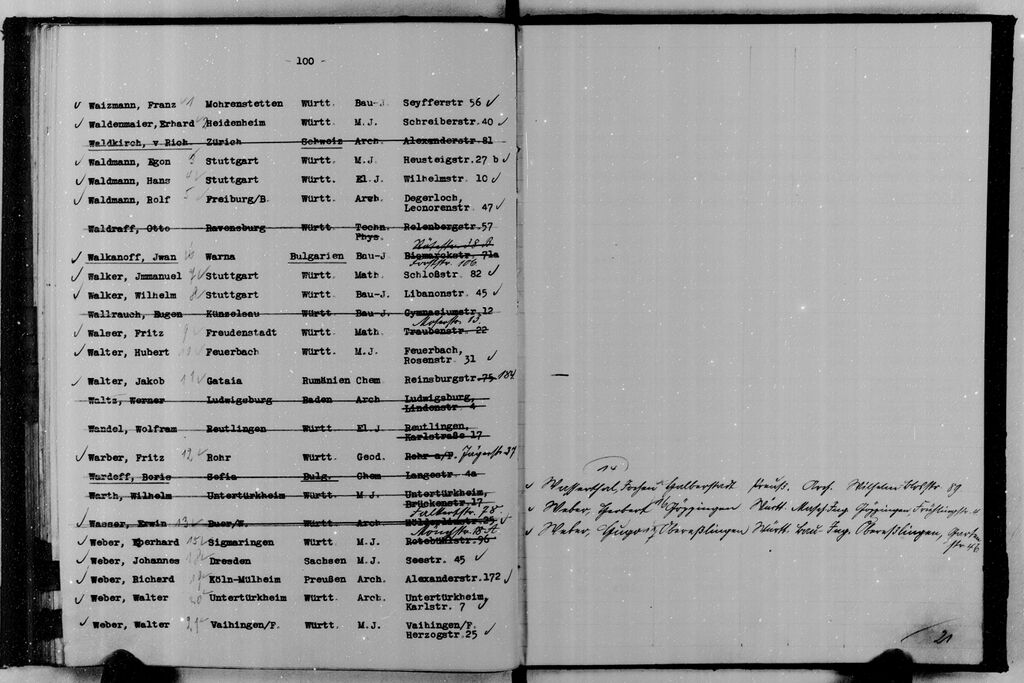 - 100 -
✓ Waizmann, Franz 1 Mohrenstetten Württ. Bau-J. Seyfferstr 56 ✓
✓ Waldenmaier, Erhard 2 Heidenheim Württ. M.J. Schreiberstr. 40 ✓
Waldkirch, v Rich. Zürich Schweiz Arch. Alexanderstr. 81
✓ Waldmann, Egon 3 Stuttgart Württ. M.J. Heusteigstr. 27 b ✓
✓ Waldmann, Hans 4 Stuttgart Württ. El.J. Wilhelmstr. 10 ✓
✓ Waldmann, Rolf 5 Freiburg/B. Württ. Arch. Degerloch,
Leonorenstr. 47 ✓
Waldraff, Otto Ravensburg Württ. Techn. Relenbergstr. 57
Phys.
✓ Walkanoff, Jwan 6 Warna Bulgarien Bau-J Bismarckstr. 71a
Forststr. 106
✓ Walker, Jmmanuel 7 ✓ Stuttgart Württ. Math. Schloßstr. 82 ✓
✓ Walker, Wilhelm 8 ✓ Stuttgart Württ. Bau-J. Libanonstr. 45 ✓
Wallrauch, Eugen Künzelsau Württ. Bau-J. Gymnasiumstr. 12
Moserstr. 13
✓ Walser, Fritz 9 ✓ Freudenstadt Württ. Math. Traubenstr. 22
✓ Walter, Hubert 10 ✓ Feuerbach Württ. M.J. Feuerbach,
Rosenstr. 31 ✓
✓ Walter, Jakob 11 ✓ Gataia Rumänien Chem. Reinsburgstr. 75 184
Waltz, Werner Ludwigsburg Baden Arch Ludwigsburg,
Lindenstr. 4
Wandel, Wolfram Reutlingen Württ. El.J Reutlingen,
Karlstraße 17
✓ Warber, Fritz 12 ✓ Rohr Württ. Geod. Rohr a/F. Jägerstr 27
Wardoff, Boris Sofia Bulg. Chem Langestr. 4a
Warth, Wilhelm Untertürkheim Württ. M.J. Untertürkheim,
Brückenstr. 17
✓ Wasser, Erwin 13 ✓ Buer/W. Württ. Arch
✓ Weber, Eberhard 15 ✓ Sigmaringen Württ. M.J. Rotebühlstr. 96
✓ Weber, Johannes 18 ✓ Dresden Sachsen M.J. Seestr. 45 ✓
✓ Weber, Richard 19 ✓ Köln-Mülheim Preußen Arch. Alexanderstr. 172 ✓
✓ Weber, Walter 20 ✓ Untertürkheim Württ. Arch. Untertürkheim,
Karlstr. 7 ✓
✓ Weber, Walter 21 ✓ Vaihingen/F. Württ. M.J. Vaihingen/F.
Herzogstr. 25 ✓
14
✓ Wasserthal, Jochen Halberstadt Preuß. Arch. Wilhelm 89
✓ Weber, Herbert 16 Göppingen Württ. Masch Ing Göppingen, Frühlingstr.
✓ Weber, Hugo 17 Oberesslingen Württ. Bau Ing. Oberesslingen, Garten
str 46
21